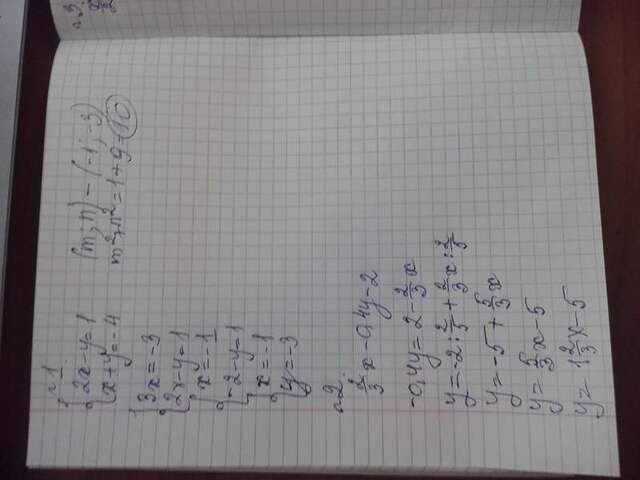 №1.
2x-y=1
x+y=-4
(m;n) - (-1;-3)
m²+n²=1+9=10
3x=-3
2x-y=1
x=-1
-2-y=1
x=-1
y=-3
№2.
2/3 x-0,4y-2
-0,4y=2-2/3 x
y=-2:2/5+2/3 x:2/5
y=-5+5/3 x
y=5/3 x-5
y=1 2/3 x-5
№3